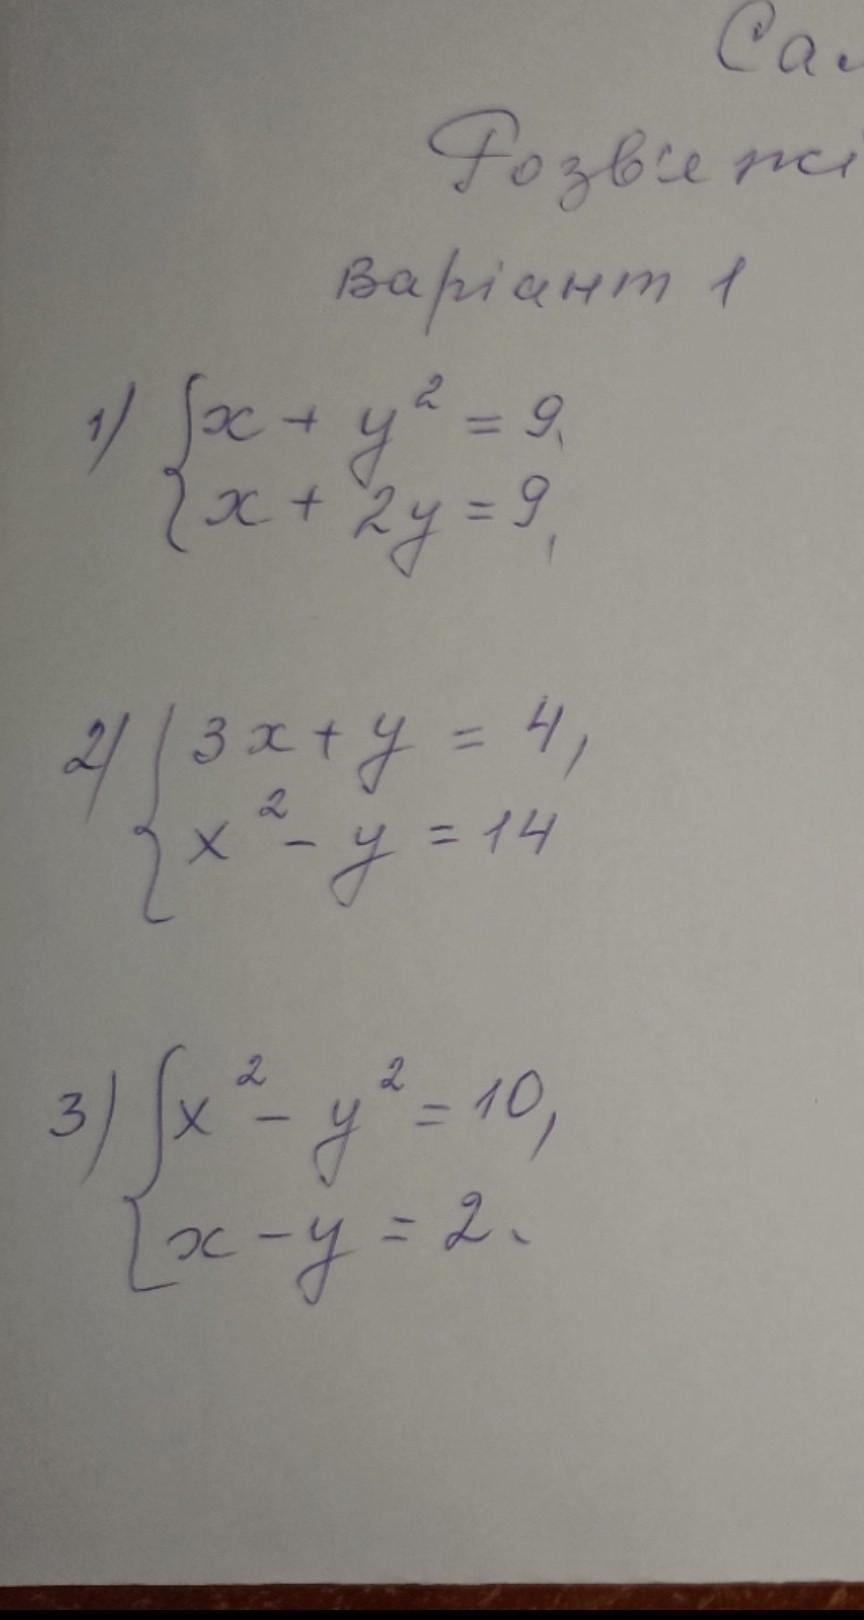 Розв'яжі
Варіант 1
1) { x + y² = 9,
x + 2y = 9,
2) { 3x + y = 4,
x² - y = 14
3) { x² - y² = 10,
x - y = 2.